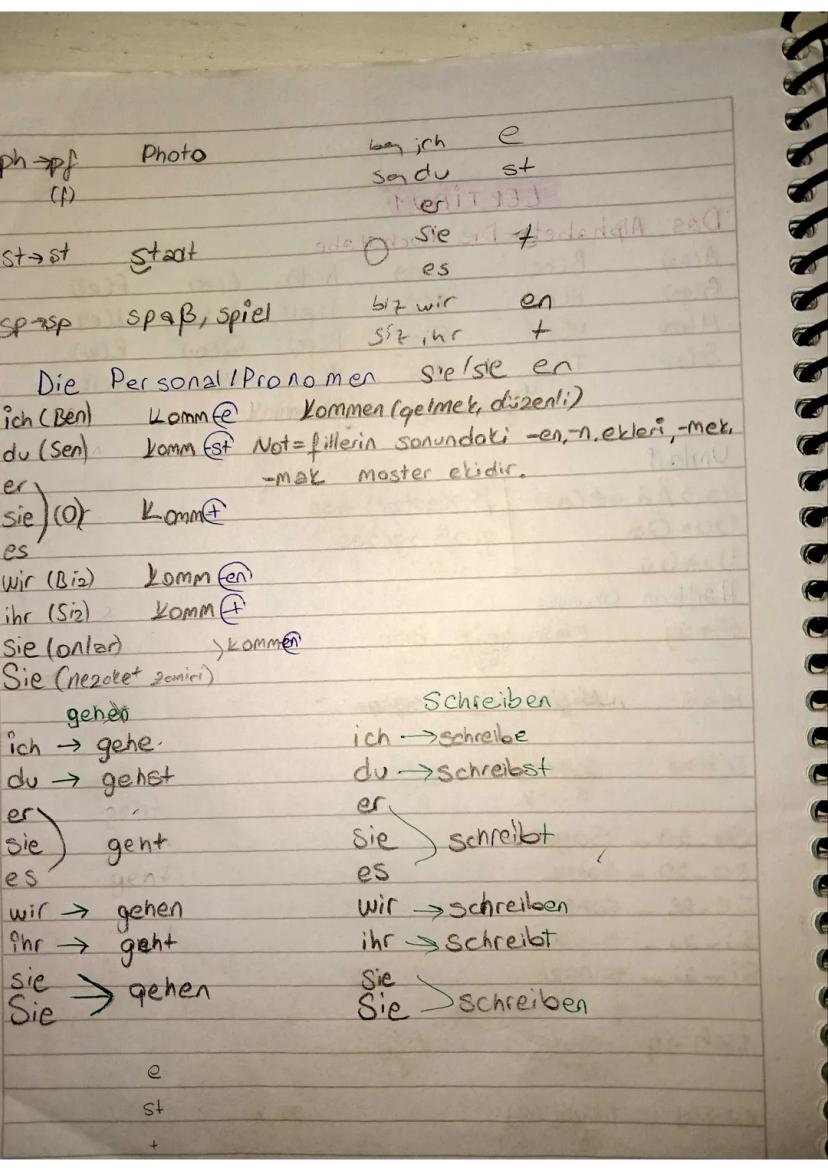 ph → pf Photo ben ich e
(f) sen du st
er
st → st staat O sie t
es
sp → sp spaß, spiel biz wir en
siz ihr t
Die Personal / Pronomen sie/sie en
ich (Ben) komm e kommen (gelmek, düzenli)
du (Sen) komm st Not= fillerin sonundaki -en, -n, ekleri, -mek,
-mak master ekidir.
er
sie (O) komm t
es
wir (Biz) komm en
ihr (Siz) komm t
Sie (onlar) kommen
Sie (nezaket zamiri)
gehen Schreiben
ich → gehe. ich → schreibe
du → gehst du → schreibst
er er
sie geht sie schreibt
es es
wir → gehen wir → schreiben
ihr → geht ihr → schreibt
sie → gehen sie schreiben
Sie Sie
e
st
t